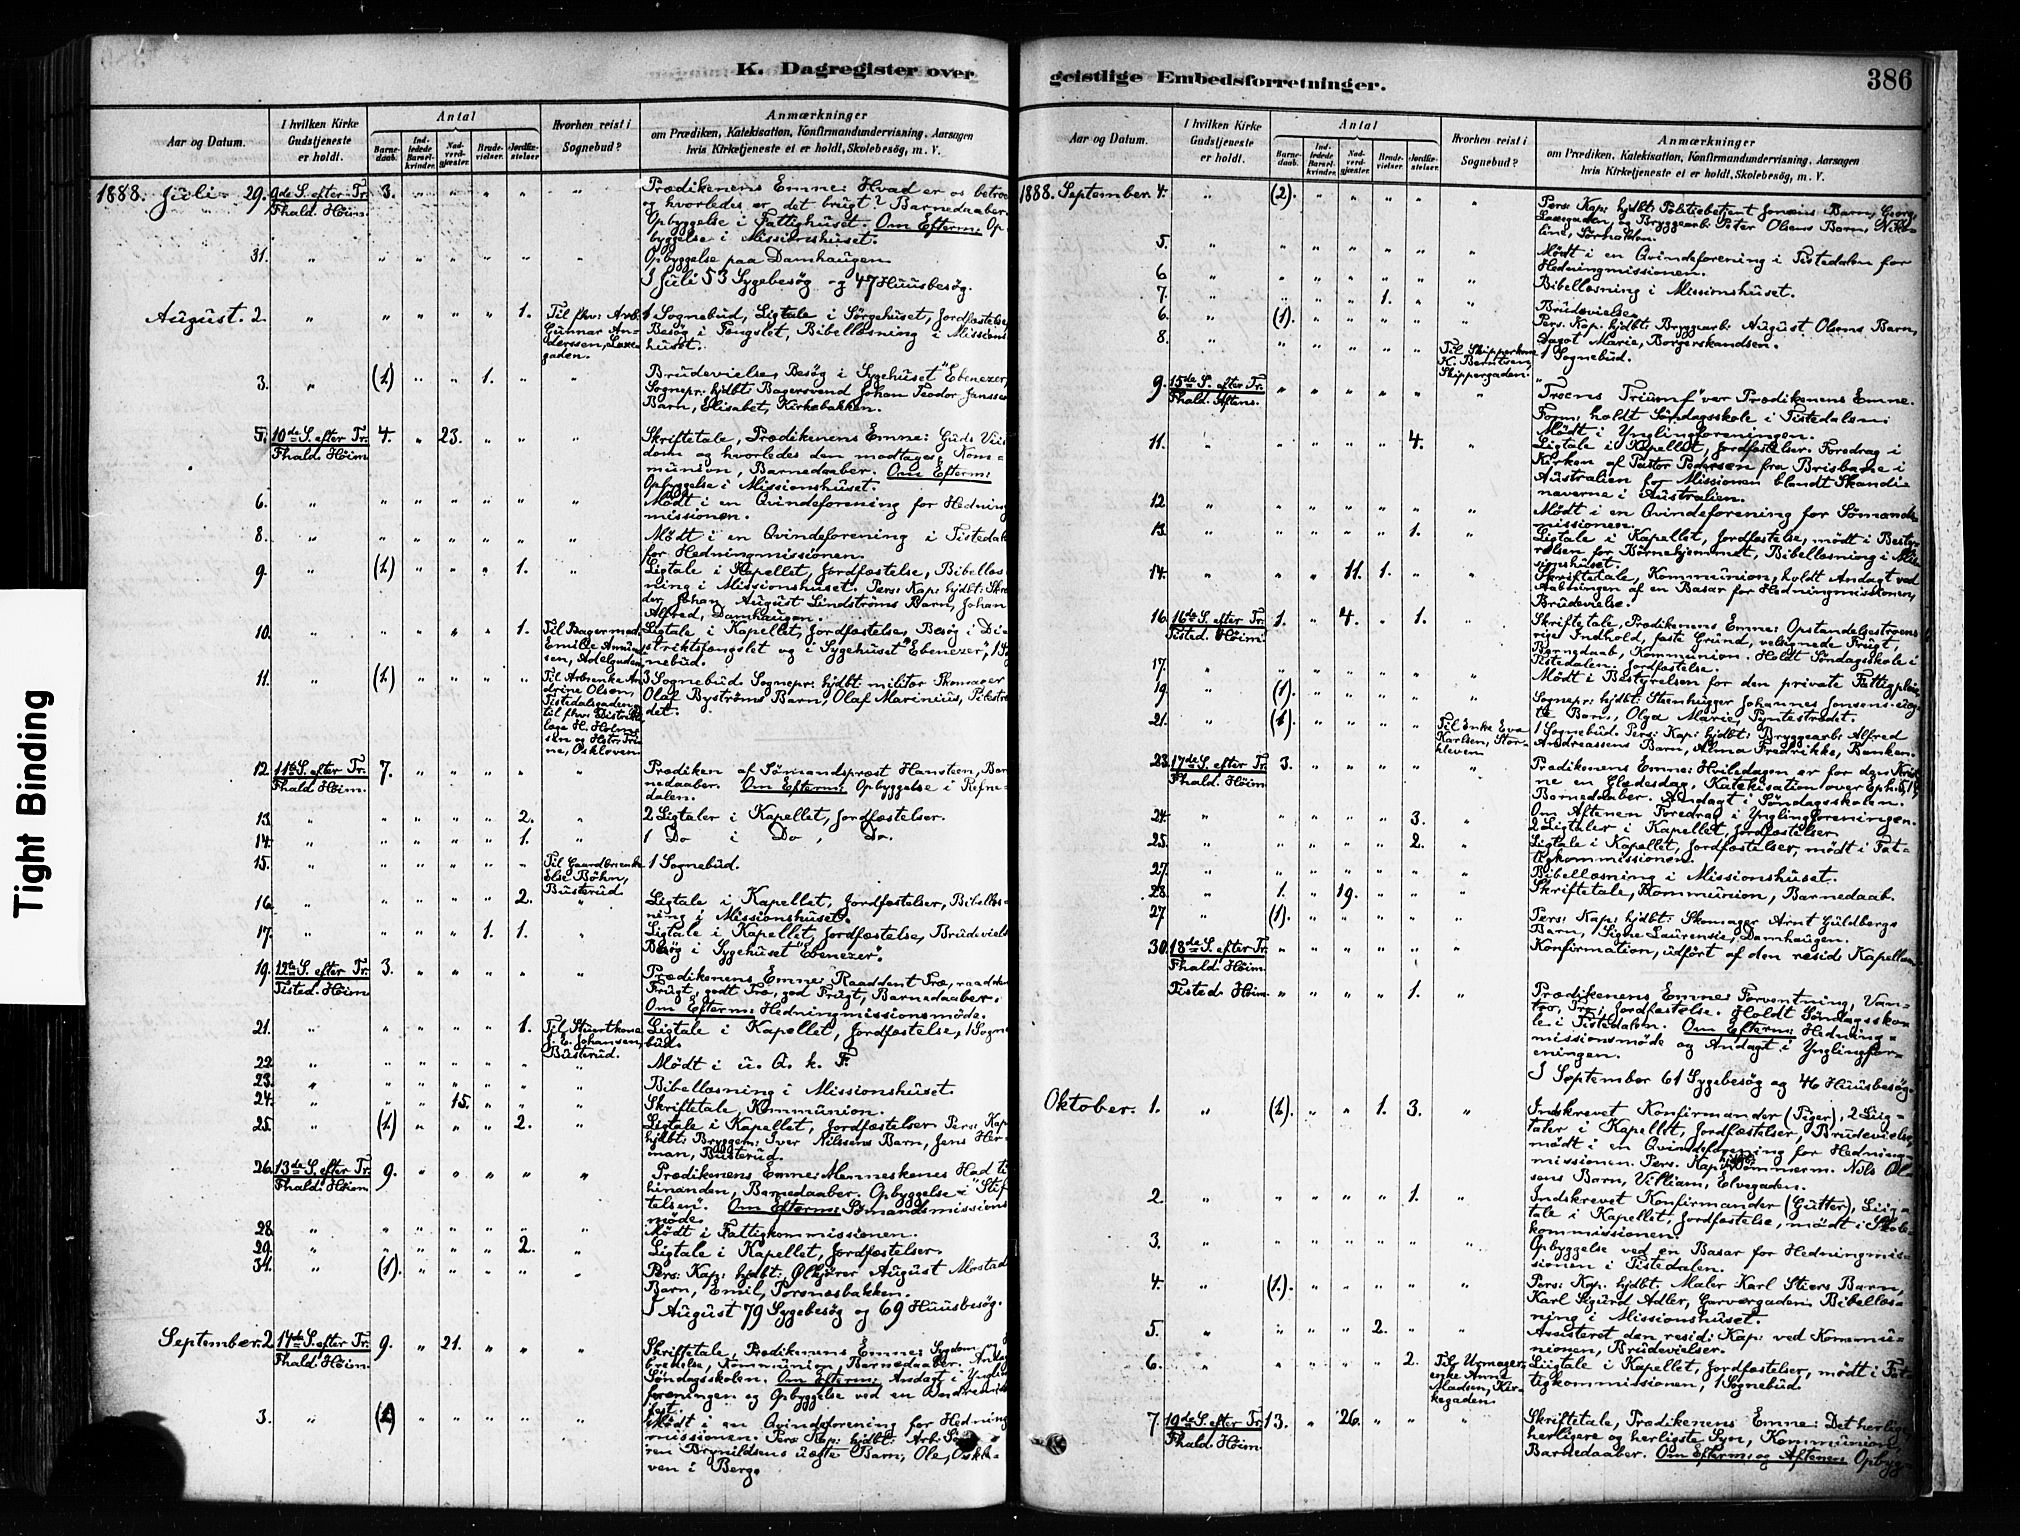 K. Dagregister over
Aar og Datum.
I hvilken Kirke Gudstjeneste er holdt.
Antal
Barne-daab.
Ind-ledede Barsel-kvinder.
Nad-verd-gjæster.
Brude-vielser.
Jordfæ-stelser
Hvorhen reist i Sognebud?
Anmærkninger
om Prædiken, Katekisation, Konfirmandundervisning, Aarsagen
hvis Kirketjeneste ei er holdt, Skolebesøg, m. V.
1888. Juli 29. 9de S. efter Tr. Fhald. Høim. 3. Prædikenens Emne: Hvad er os betroet
og hvorledes er det brugt? Barnedaaber.
Opbyggelse i Fattighuset. Om Efterm: Op-
byggelse i Missionshuset.
31. Opbyggelse paa Damhaugen
I Juli 53 Sygebesøg og 47 Huusbesøg.
August. 2. 1. Til fhv: Arb.
Gunnar An-
derssen, Laxe-
gaden.
1 Sognebud, Ligtale i Sørgehuset, Jordfæstelse,
Besøg i Fængslet, Bibellæsning i Missions-
huset.
3. (1) 1. Brudevielse, Besøg i Sygehuset "Ebenezer,
Sognepr: hjdbt: Bagersvend Johan Teodor Janssen
Barn, Elisabet, Kirkebakken.
5. 10de S. efter Tr. Fhald. Høim 4. 23. Skriftetale, Prædikenens Emne: Guds Viis-
dom og hvorledes den modtages, Kom-
munion, Barnedaaber. Om Efterm:
Opbyggelse i Missionshuset.
6. Mødt i en Qvindeforening for Hedning
missionen.
8. Mødt i en Qvindeforening i Tistedal
for Hedningmissionen.
9. (1.) 1. Ligtale i Kapellet, Jordfæstelse, Bibellæs-
ning i Missionshuset. Pers: Kap: hjdbt: Skræ-
der Johan August Lindstrøms Barn, Johan
Alfred, Damhaugen.
10. 1. Til Bagermad.
Emilie Amund-
sen, Adelgaden
Ligtale i Kapellet, Jordfæstelse, Besøg i Di-
striktsfængslet og i Sygehuset "Ebenezer", 1 So-
gnebud.
11. (1.) Til Arbenke An-
drine Olsen,
Tistedalsgaden,
til fhv: Distrikts-
læge H. Holm-
sen og Hstr: Tri-
ne, Oskleven
3 Sognebud. Sognepr: hjdbt: militær Skomager
Olaf Bystrøms Barn, Olaf Marinius,
det.
12. 11te S. efter Tr. Fhald. Høim. 7. Prædiken af Sømandsprest Hansteen, Bar-
nedaaber. Om Efterm: Opbyggelse i Refne-
dalen.
13. 2. 2 Ligtaler i Kapellet, Jordfæstelser.
14. 1. 1 Do i Do, Do.
15. Til Gaardbrenke
Else Bøhn,
Busterud.
1 Sognebud.
16. 2. Ligtale i Kapellet, Jordfæstelser, Bibellæs-
ning i Missionshuset.
17. 1. 1. Ligtale i Kapellet, Jordfæstelse, Brudevielse
Besøg i Sygehuset "Ebenezer".
19. 12te S. efter Tr. Tisted. Høim 3. Prædikenens Emne: Raaddent Træ, raadden
Frugt, godt Træ, god Frugt, Barnedaaber.
Om Efterm: Hedningmissionsmøde.
21. 1. Til Stuertkone
J. E. Johansen,
Busterud.
Ligtale i Kapellet, Jordfæstelse, 1 Sogne-
bud.
22. Mødt i u. Q. k. F.
23. Bibellæsning i Missionshuset.
24. 15. Skriftetale, Kommunion.
25. (1.) 2. Ligtale i Kapellet, Jordfæstelser Pers: Kap
hjdbt: Bryggem: Iver Nilssens Barn, Jens Her-
man, Busterud.
26. 13de S. efter Tr. Fhald. Høim 9. Prædikenens Emne: Menneskenes Had til
hinanden, Barnedaaber. Opbyggelse i "Stif-
telsen". Om Efterm: Sømandsmissions
møde.
28. Mødt i Fattigkommissionen.
29. 2. Ligtale i Kapellet, Jordfæstelser.
31. (1). Pers: Kap: hjdbt: Ølkjører August
Barn, Emil, Torsnæsbakken.
I August 79 Sygebesøg og 69 Huusbesøg.
September. 2. 14de S. efter Tr. Fhald. Høim. 9. 21. Skriftetale, Prædikenens Emne: Sygdom og
bredelse, Kommunion, Barnedaaber. Andag
Søndagsskolen. Om Efterm: Andagt i Yngling
foreningen og Opbyggelse ved en
fest.
3. Mødt i en Qvindeforening for Hedning
missionen. Pers: Kap: hjdbt: Arb:
ren Brynildsens uægte Barn, Ole, Oskle-
ven i Berg.
geistlige Embedsforretninger.
386
Aar og Datum.
I hvilken Kirke Gudstjeneste er holdt.
Antal
Barne-daab.
Ind-ledede Barsel-kvinder.
Nad-verd-gjæster.
Brude-vielser.
Jordfæ-stelser.
Hvorhen reist i Sognebud?
Anmærkninger
om Prædiken, Katekisation, Konfirmandundervisning, Aarsagen
hvis Kirketjeneste ei er holdt, Skolebesøg, m. V.
1888. September 4. (2). Pers: Kap: hjdbt: Politiebetjent Jensens Barn, Georg,
Laxegaden, og Bryggearb: Peter Olsens Barn, Niko-
line, Sørhalden.
5. Mødt i en Qvindeforening i Tistedalen for
Hedningmissionen.
6. Bibellæsning i Missionshuset.
7. 1. Brudevielse.
6. (1). Pers: Kap: hjdbt: Bryggearb: August Olsens Barn,
Dagot Marie, Borgerskandsen.
8. Til Skipperkone
K. Berntsen,
Skippergaden.
1 Sognebud.
9. 15de S. efter Tr. Fhald. Aftens. "Troens Triumf" var Prædikenens Emne.
Form: holdt Søndagsskole i Tistedalen.
Mødt i Ynglingforeningen.
11. 4. Ligtale i Kapellet, Jordfæstelser. Foredrag i
Kirken af Pastor Pedersen fra Brisbane i
Australien for Missionen blandt Skandi-
naverne i Australien.
12. Mødt i en Qvindeforening for Sømands-
missionen.
13. 1. Ligtale i Kapellet, Jordfæstelse, mødt i Besty-
relsen for Børnehjemmet, Bibellæsning i Mis-
sionshuset.
14. 11. 1. Skriftetale, Kommunion, holdt Andagt ved
Aabningen af en Basar for Hedningmissionen,
Brudevielse.
16. 16de S. efter Tr. Tisted. Høim. 1. 4. 1. Skriftetale, Prædikenens Emne: Opstandelsestroens
rige Indhold, faste Grund, velsignede Frugt,
Barnedaab, Kommunion. Holdt Søndagsskole i
Tistedalen. Jordfæstelse.
17. Mødt i Bestyrelsen for den private Fattigpleie.
19. (1). Sognepr: hjdbt: Steenhugger Johannes Jonsens uæg-
te Barn, Olga Marie, Tyntestrædet.
21. (1.) Til Enke Eva
Karlsen, Stor-
kleven.
1 Sognebud. Pers: Kap: hjdbt: Bryggearb: Alfred
Andreassens Barn, Alma Fredrikke, Banken.
23. 17de S. efter Tr. Fhald. Høim. 3. Prædikenens Emne: Hviledagen er for den Krist-
ne en Glædesdag, Katekisation over Eph.
Barnedaaber. Andagt i Søndagsskolen.
Om Aftenen Foredrag i Ynglingforeningen.
24. 3. 2 Ligtaler i Kapellet, Jordfæstelser
25. 2. Ligtale i Kapellet, Jordfæstelser, mødt i Fat-
tigkommissionen.
27. Bibellæsning i Missionshuset.
28. 1. 19. Skriftetale, Kommunion, Barnedaab.
27. (1). Pers: Kap: hjdbt: Skomager Arnt Guldbergs
Barn, Signe Laurensie, Damhaugen.
30. 18de S. efter Tr. Fhald. Høim. Konfirmation, udført af den resid: Kapellan
Tisted. Høim. 1. Prædikenens Emne: Forventning, Van-
tro, Tro, Jordfæstelse. Holdt Søndagssko-
le i Tistedalen. Om Efterm: Hedning-
missionsmøde og Andagt i Ynglingfor-
eningen.
I September 61 Sygebesøg og 46 Huusbesøg.
Oktober. 1. (1). 1. 3. Indskrevet Konfirmander (Piger), 2 Liig-
taler i Kapellet, Jordfæstelser, Brudevielse,
mødt i en Qvindeforening for Hedning-
missionen. Pers. Kap: hjdbt: Tømmerm. Nils Ol-
sens Barn, Villiam, Elvegaden.
2. 1. Indskrevet Konfirmander (Gutter), Liig-
tale i Kapellet, Jordfæstelse, mødt i Skole-
kommissionen.
3. Opbyggelse ved en Basar for Hedningmis-
sionen i Tistedalen.
4. (1.) Pers: Kap. hjdbt. Maler Karl Stiers Barn,
Karl Sigurd Adler, Garvergaden. Bibellæs-
ning i Missionshuset.
5. 2. Assisteret den resid: Kap: ved Kommu-
nionen, Brudevielser.
6. 2. Til Urmager-
enke Anne
Madsen, Kir-
kegaden.
Liigtale i Kapellet, Jordfæstelser, mødt i Fat-
tigkommissionen, 1 Sognebud.
7. 19de S. efter Tr. Fhald. Høim. 13. 26. Skriftetale, Prædikenens Emne: Det herlige,
herligere og herligste Syn, Kommunion,
Barnedaaber. Om Efterm: og Aftenen: Opbyg-
Tight Binding